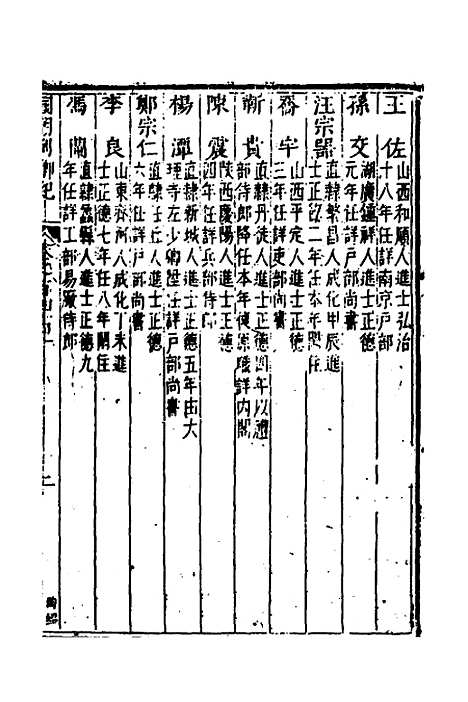 王佐
山西和順人進士弘治
十八年任詳南京戶部
孫交
湖廣鍾祥人進士正德
元年任詳戶部尚書
汪宗器
直隸繁昌人成化甲辰進
士正德二年任本年閒住
喬宇
山西平定人進士正德
三年任詳吏部尚書
靳貴
直隸丹徒人進士正德四年以禮
部侍郎降任本年復原職詳內閣
陳震
陝西慶陽人進士正德
四年任詳兵部侍郎
楊潭
直隸新城人進士正德五年由大
理寺左少卿陞任詳戶部尚書
鄭宗仁
直隸任丘人進士正德
六年任詳戶部尚書
李良
山東齊河人成化丁未進
士正德七年任八年閒住
馮蘭
直隸
人進士正德九
年任詳工部易州侍郎
國朝列卿紀